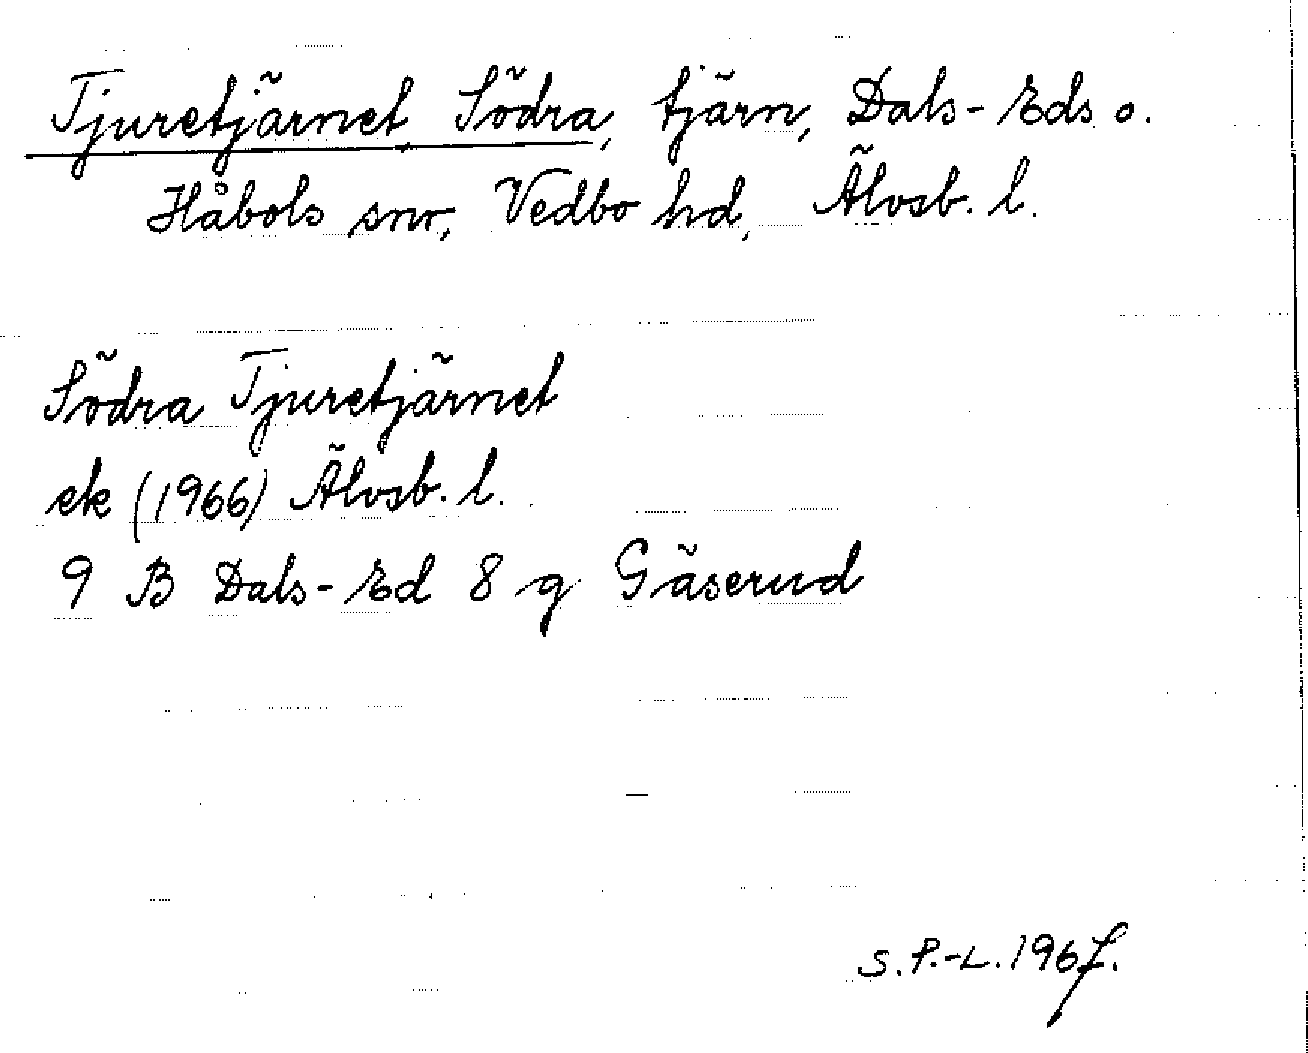 Tjuretjärnet, Södra, tjärn, Dals-Eds o.
Håbols snr, Vedbo hd, Älvsb. l.
Södra Tjuretjärnet
ek (1966) Älvsb. l.
9 B Dals-Ed 8 g Gäserud
S.P.-L. 1967.